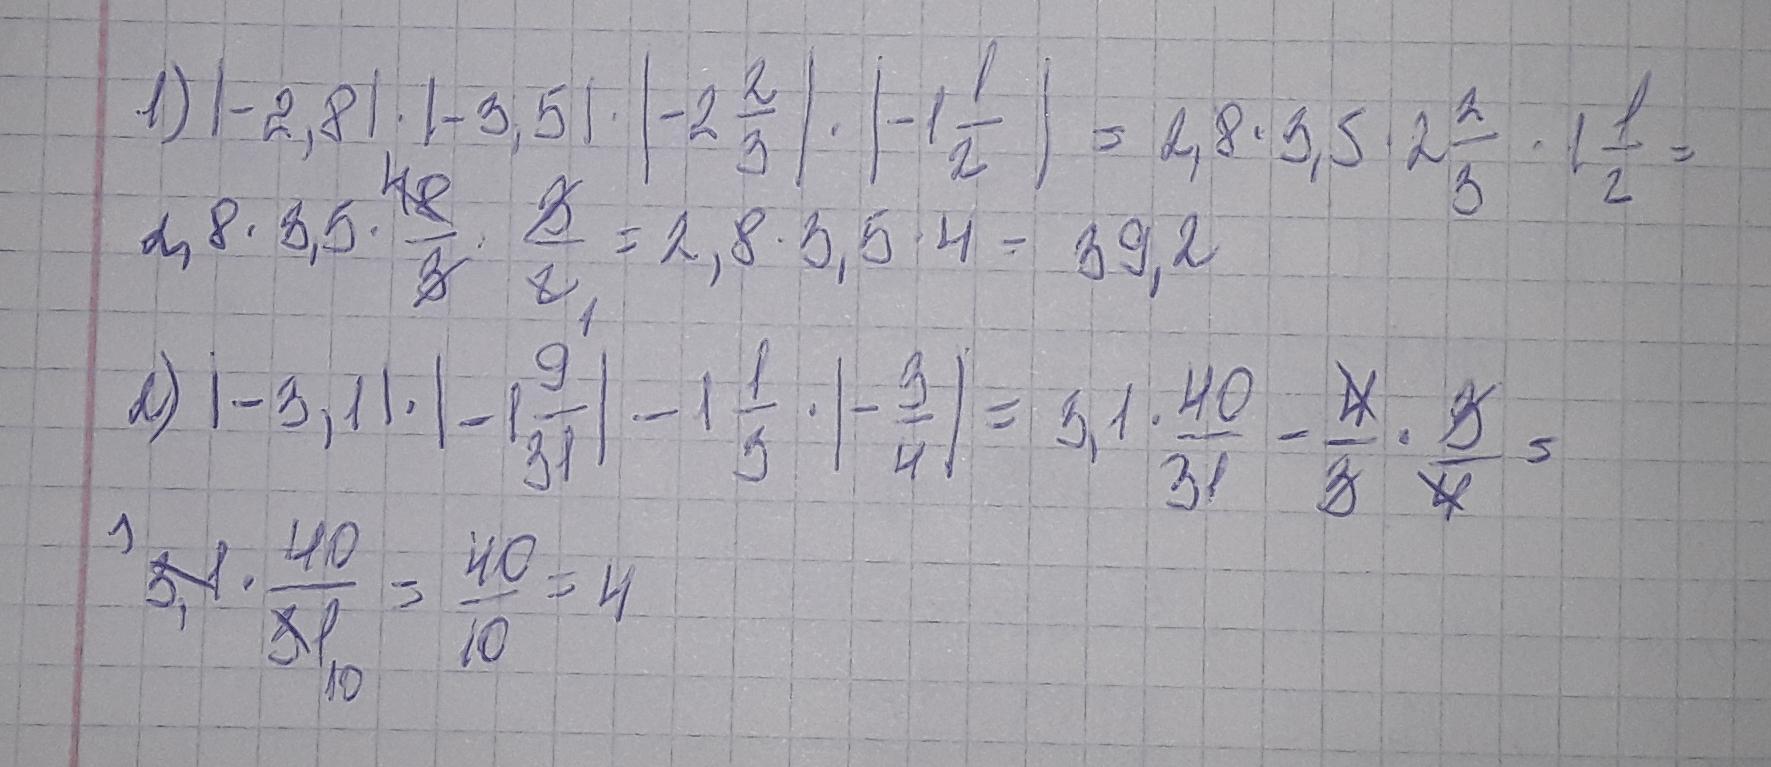 1) |-2,8|·|-3,5|·|-2 2/3|·|-1 1/2| = 2,8·3,5·2 2/3·1 1/2 =
2,8·3,5·8/3·3/2 = 2,8·3,5·4 = 39,2
2) |-3,1|·|-1 9/31| - 1 1/3·|-3/4| = 3,1·40/31 - 4/3·3/4 =
3,1·40/31 = 40/10 = 4